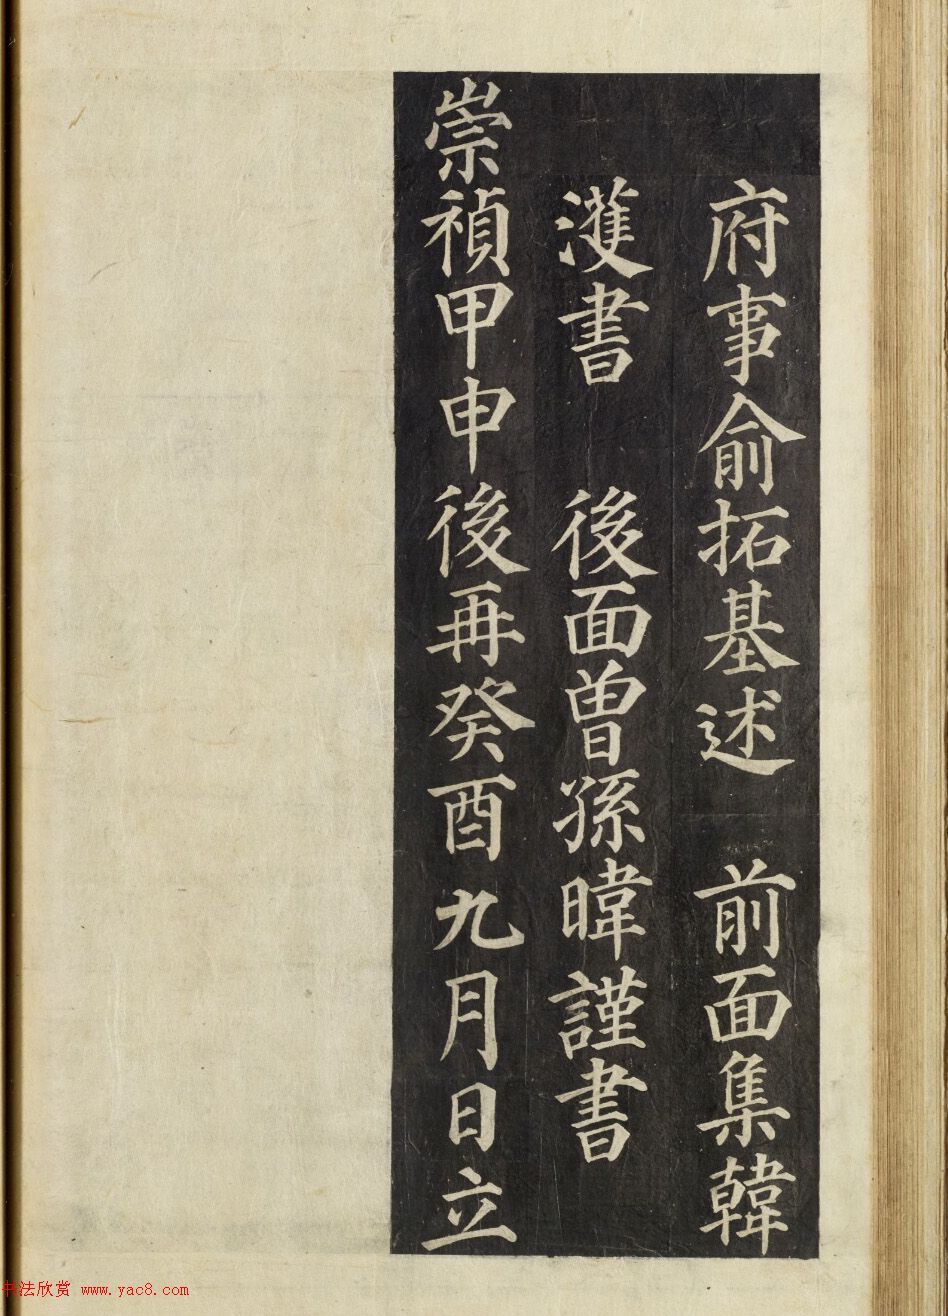 府事俞拓基述 前面集韓
濩書 後面曾孫暐謹書
崇禎甲申後再癸酉九月日立
书法欣赏 www.yac8.com